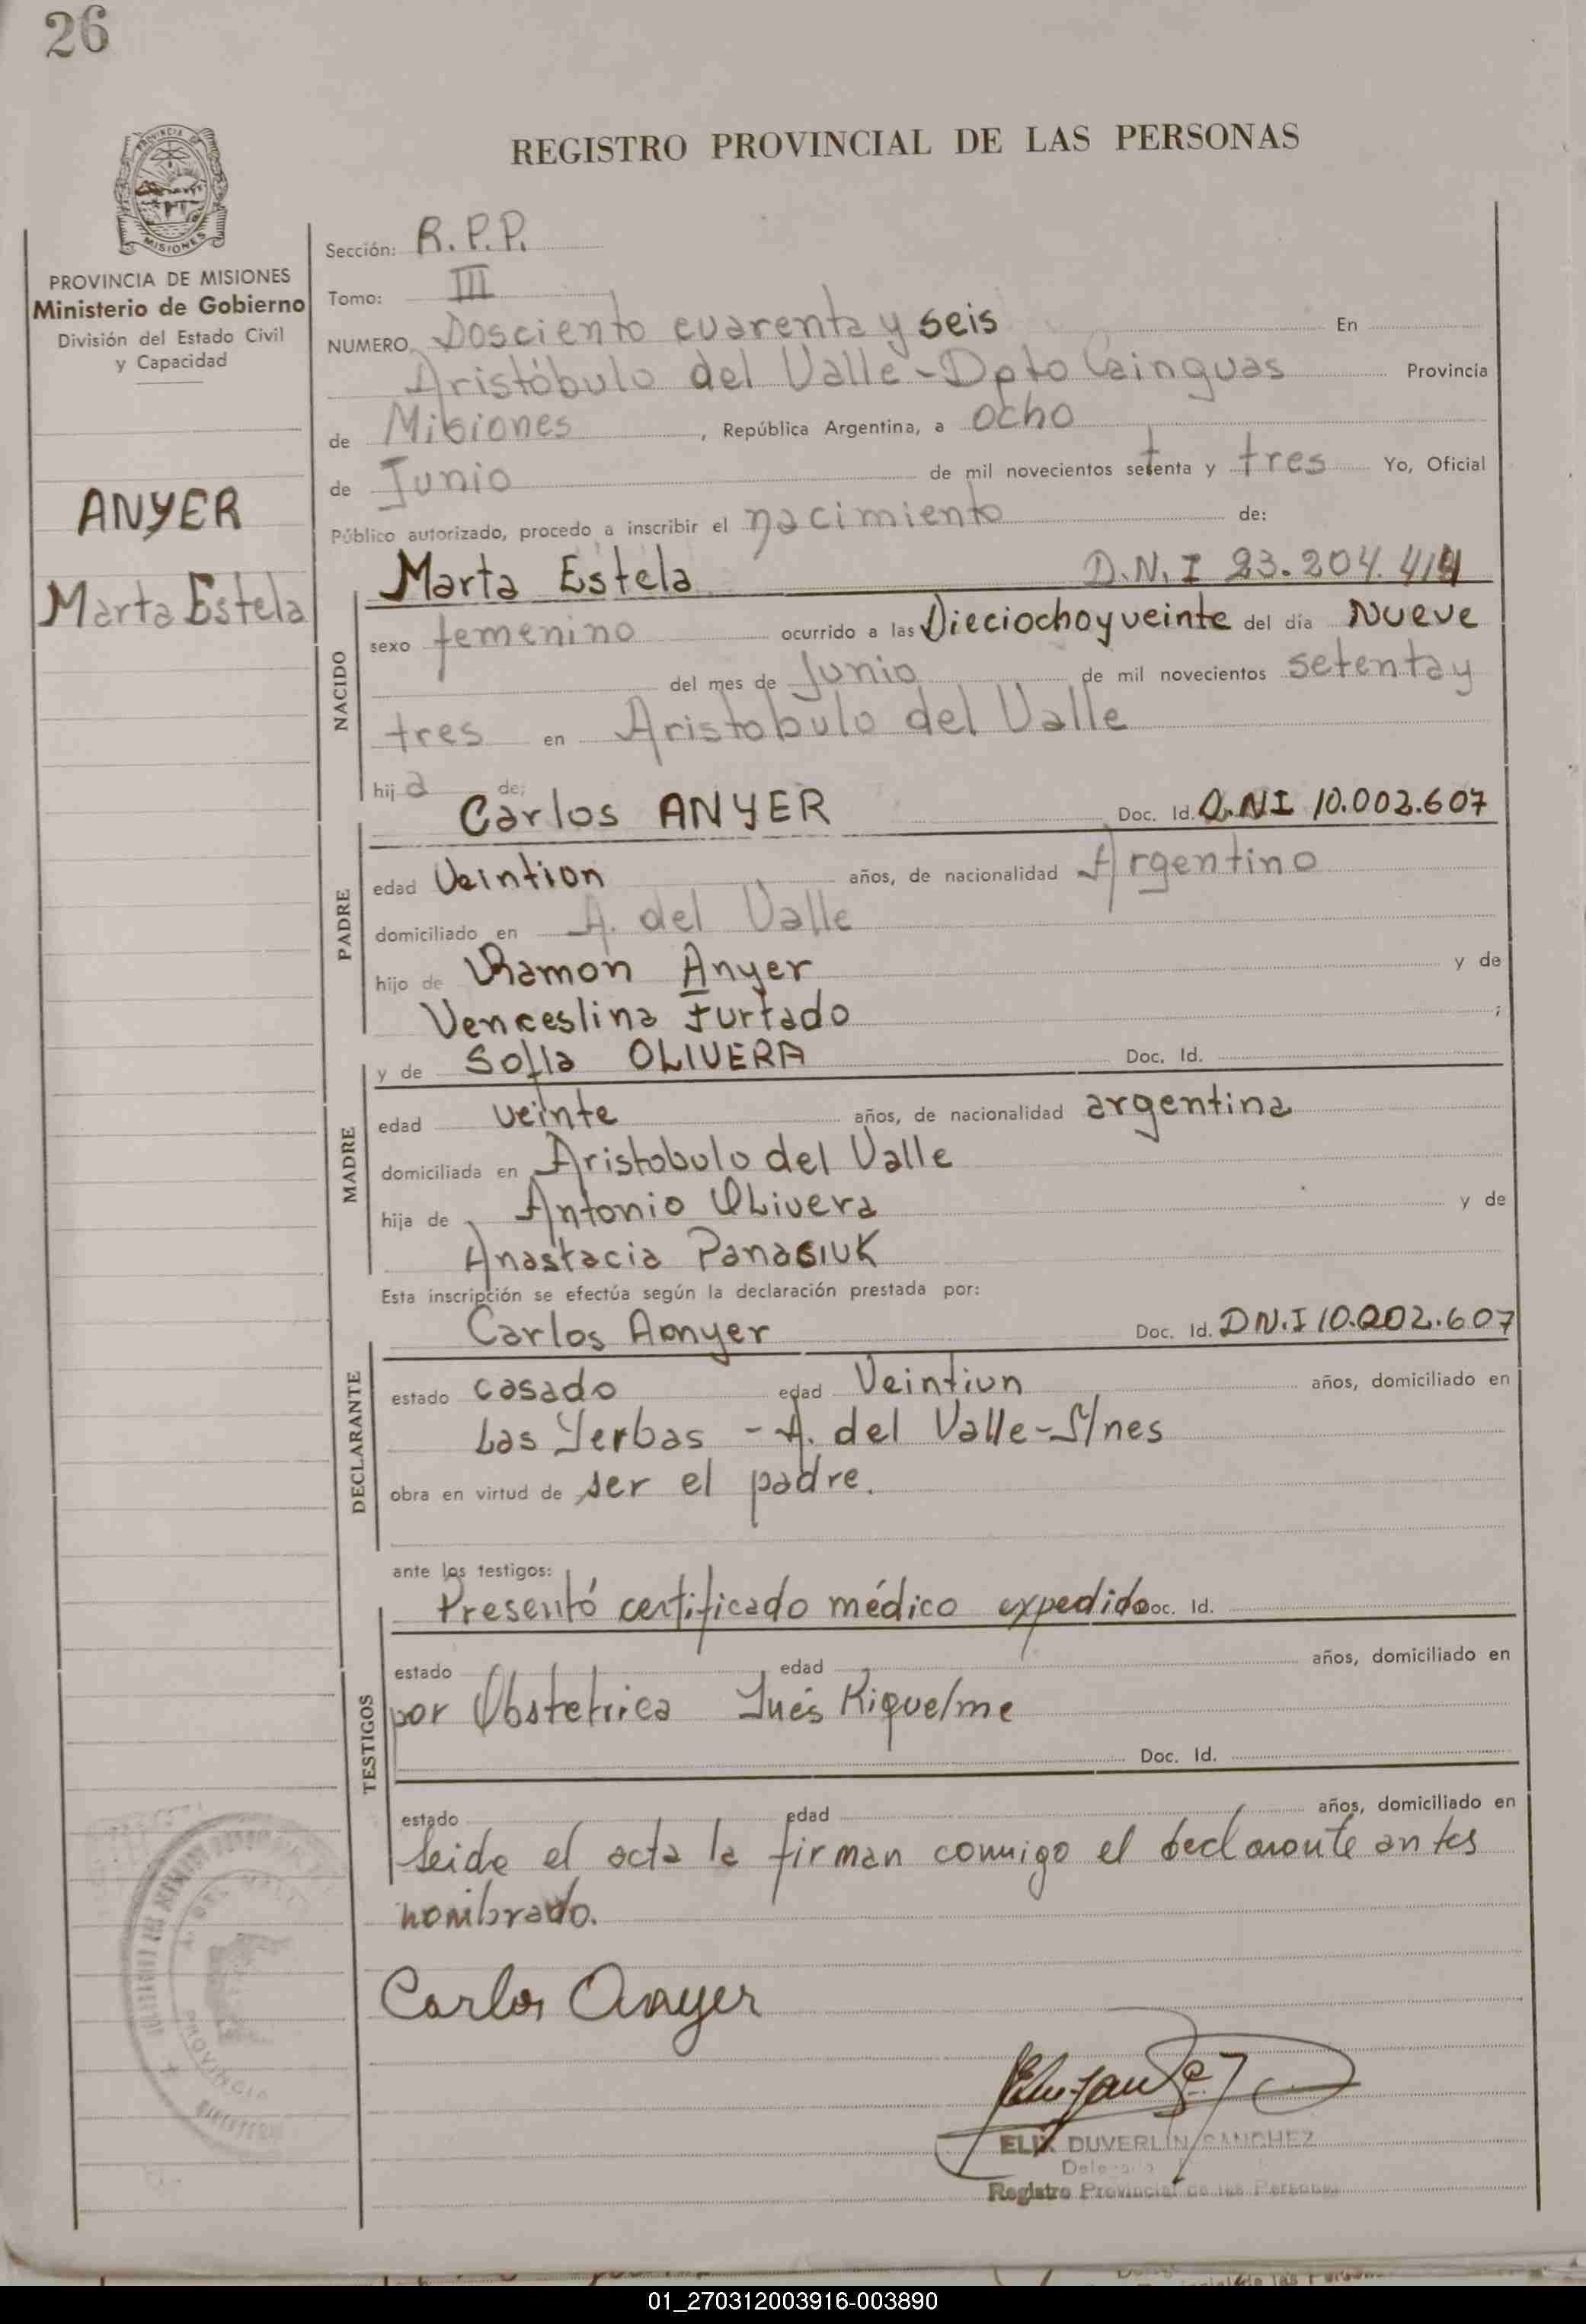 26
REGISTRO PROVINCIAL DE LAS PERSONAS
PROVINCIA DE MISIONES
Ministerio de Gobierno
División del Estado Civil
y Capacidad
ANYER
Marta Estela
Sección: R.P.P.
Tomo: III
NUMERO Dosciento cuarenta y seis En
Aristóbulo del Valle - Dpto Cainguas Provincia
de Misiones, República Argentina, a ocho
de Junio de mil novecientos setenta y tres Yo, Oficial
Público autorizado, procedo a inscribir el nacimiento de:
NACIDO
Marta Estela D.N.I 23.204.
sexo femenino ocurrido a las Dieciocho y veinte del día Nueve
del mes de Junio de mil novecientos setenta y
tres en Aristobulo del Valle
hija de:
PADRE
Carlos ANYER Doc. Id. D.NI 10.002.607
edad Veintion años, de nacionalidad Argentino
domiciliado en A. del Valle
hijo de Ramon Anyer y de
Venceslina Furtado ;
MADRE
y de Sofia OLIVERA Doc. Id.
edad veinte años, de nacionalidad argentina
domiciliada en Aristobulo del Valle
hija de Antonio Olivera y de
Anastacia Panasiuk
Esta inscripción se efectúa según la declaración prestada por:
DECLARANTE
Carlos Anyer Doc. Id. DN.I 10.002.607
estado casado edad Veintiun años, domiciliado en
Las Yerbas - A. del Valle - M/nes
obra en virtud de ser el padre.
ante los testigos:
TESTIGOS
Presentó certificado médico expedido Doc. Id.
estado edad años, domiciliado en
por Obstetrica Inés Riquelme
Doc. Id.
estado edad años, domiciliado en
Leida el acta la firman conmigo el declarante antes
nombrado.
Carlos Anyer
DUVERLIN SANCHEZ
Registro Provincial de las Personas
PROVINCIA
01_270312003916-003890